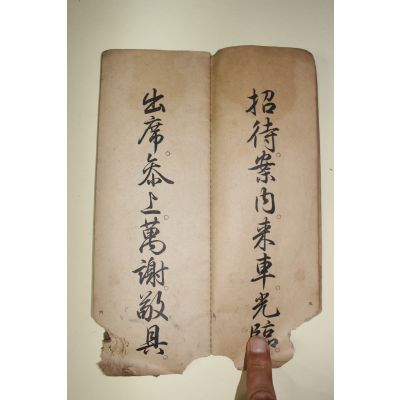 招待。案内。来車。光臨。
出席。参上。萬謝。敬具。